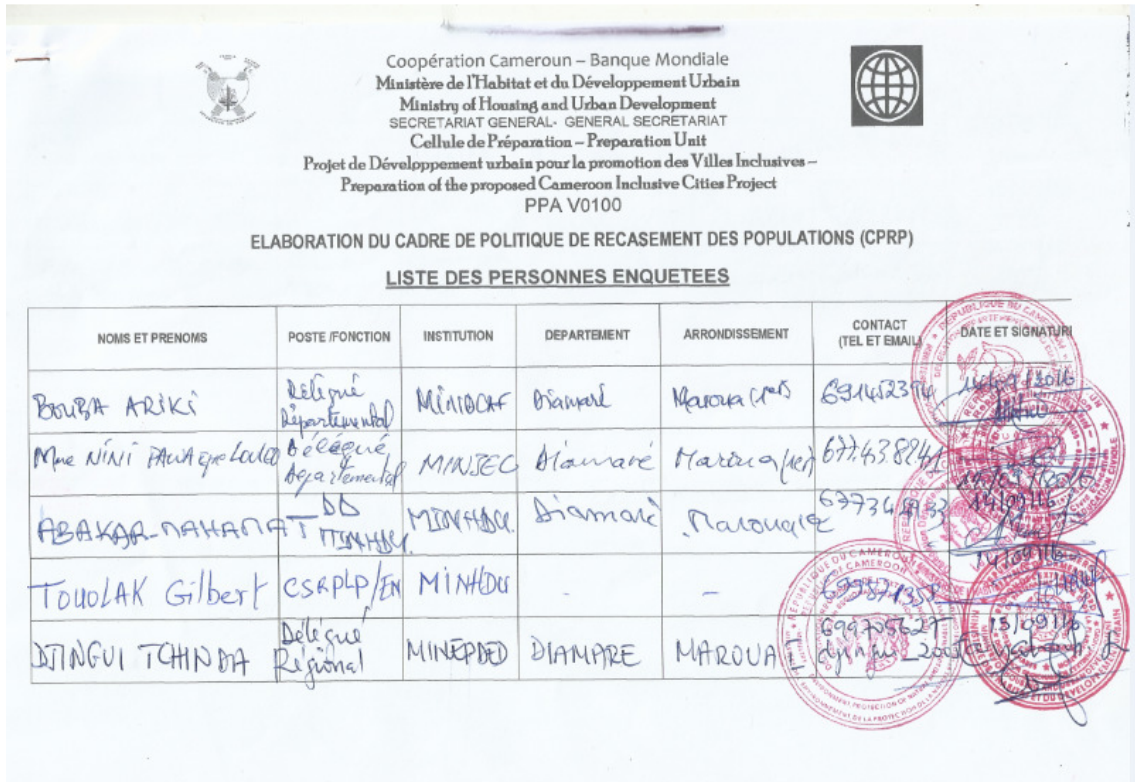 Coopération Cameroun – Banque Mondiale
Ministère de l'Habitat et du Développement Urbain
Ministry of Housing and Urban Development
SECRETARIAT GENERAL- GENERAL SECRETARIAT
Cellule de Préparation – Preparation Unit
Projet de Développement urbain pour la promotion des Villes Inclusives –
Preparation of the proposed Cameroon Inclusive Cities Project
PPA V0100
ELABORATION DU CADRE DE POLITIQUE DE RECASEMENT DES POPULATIONS (CPRP)
LISTE DES PERSONNES ENQUETEES
NOMS ET PRENOMS POSTE /FONCTION INSTITUTION DEPARTEMENT ARRONDISSEMENT CONTACT (TEL ET EMAIL) DATE ET SIGNATURE
BOUBA ARIKI Délégué Départemental Diamaré Maroua 14/09/2016
Mme NINI Délégué Départemental Diamaré 677438241
ABAKAR-MAHAMAT DD MINHDU MINHDU Diamaré 14/09/16
TOUOLAK Gilbert MINHDU - - 699871358 14/09/16
DJINGUI TCHINDA Délégué Régional MINEPDED DIAMARE MAROUA I 699705627 15/09/16